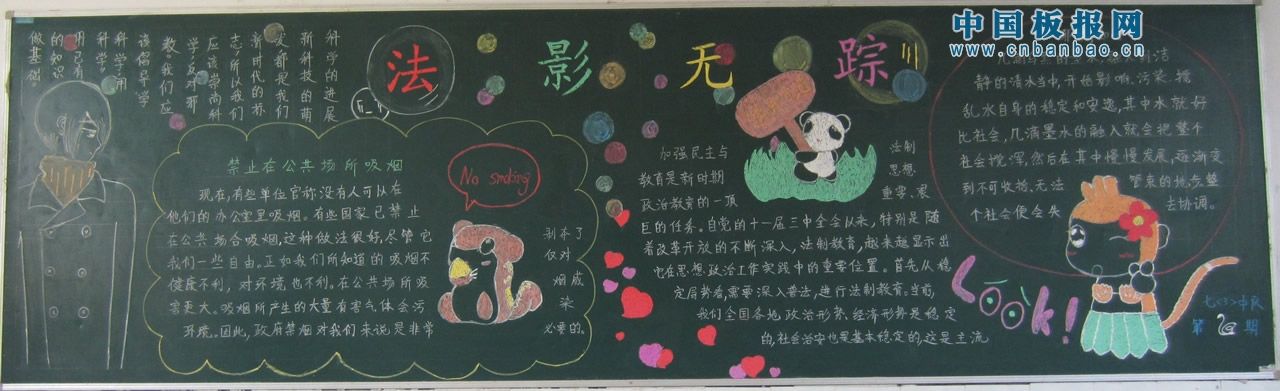 中国板报网
www.cnbanbao.cn
法影无踪
科学的进展
新科技的萌
发都是我们
新时代的标
志，所以我们
应该崇尚科
学，反对邪
教。我们应
该倡导学
科学，用
科学，
用已有
的知识
做基础。
禁止在公共场所吸烟
现在，有些单位官称没有人可以在
他们的办公室里吸烟。有些国家已禁止
在公共场合吸烟，这种做法很好，尽管它
我们一些自由。正如我们所知道的吸烟不
健康不利，对环境也不利。在公共场所吸
害更大。吸烟所产生的大量有害气体会污
环境。因此，政府禁烟对我们来说是非常
剥夺了
仅对
烟威
染
必要的。
No smoking
加强民主与
教育是新时期
政治教育的一项
法制
思想
重要、艰
巨的任务。自党的十一届三中全会以来，特别是随
着改革开放的不断深入，法制教育，越来越显示出
它在思想政治工作实践中的重要位置。首先从稳
定局势看，需要深入普法，进行法制教育。当前，
我们全国各地，政治形势、经济形势是稳定
的，社会治安也是基本稳定的，这是主流
静的清水当中，开始影响、污染、搅
乱水自身的稳定和安逸，其中水就好
比社会，几滴墨水的融入就会把整个
社会搅浑，然后在其中慢慢发展，逐渐变
到不可收拾、无法管束的地步，整
个社会便会失去协调。
Look!
第2期